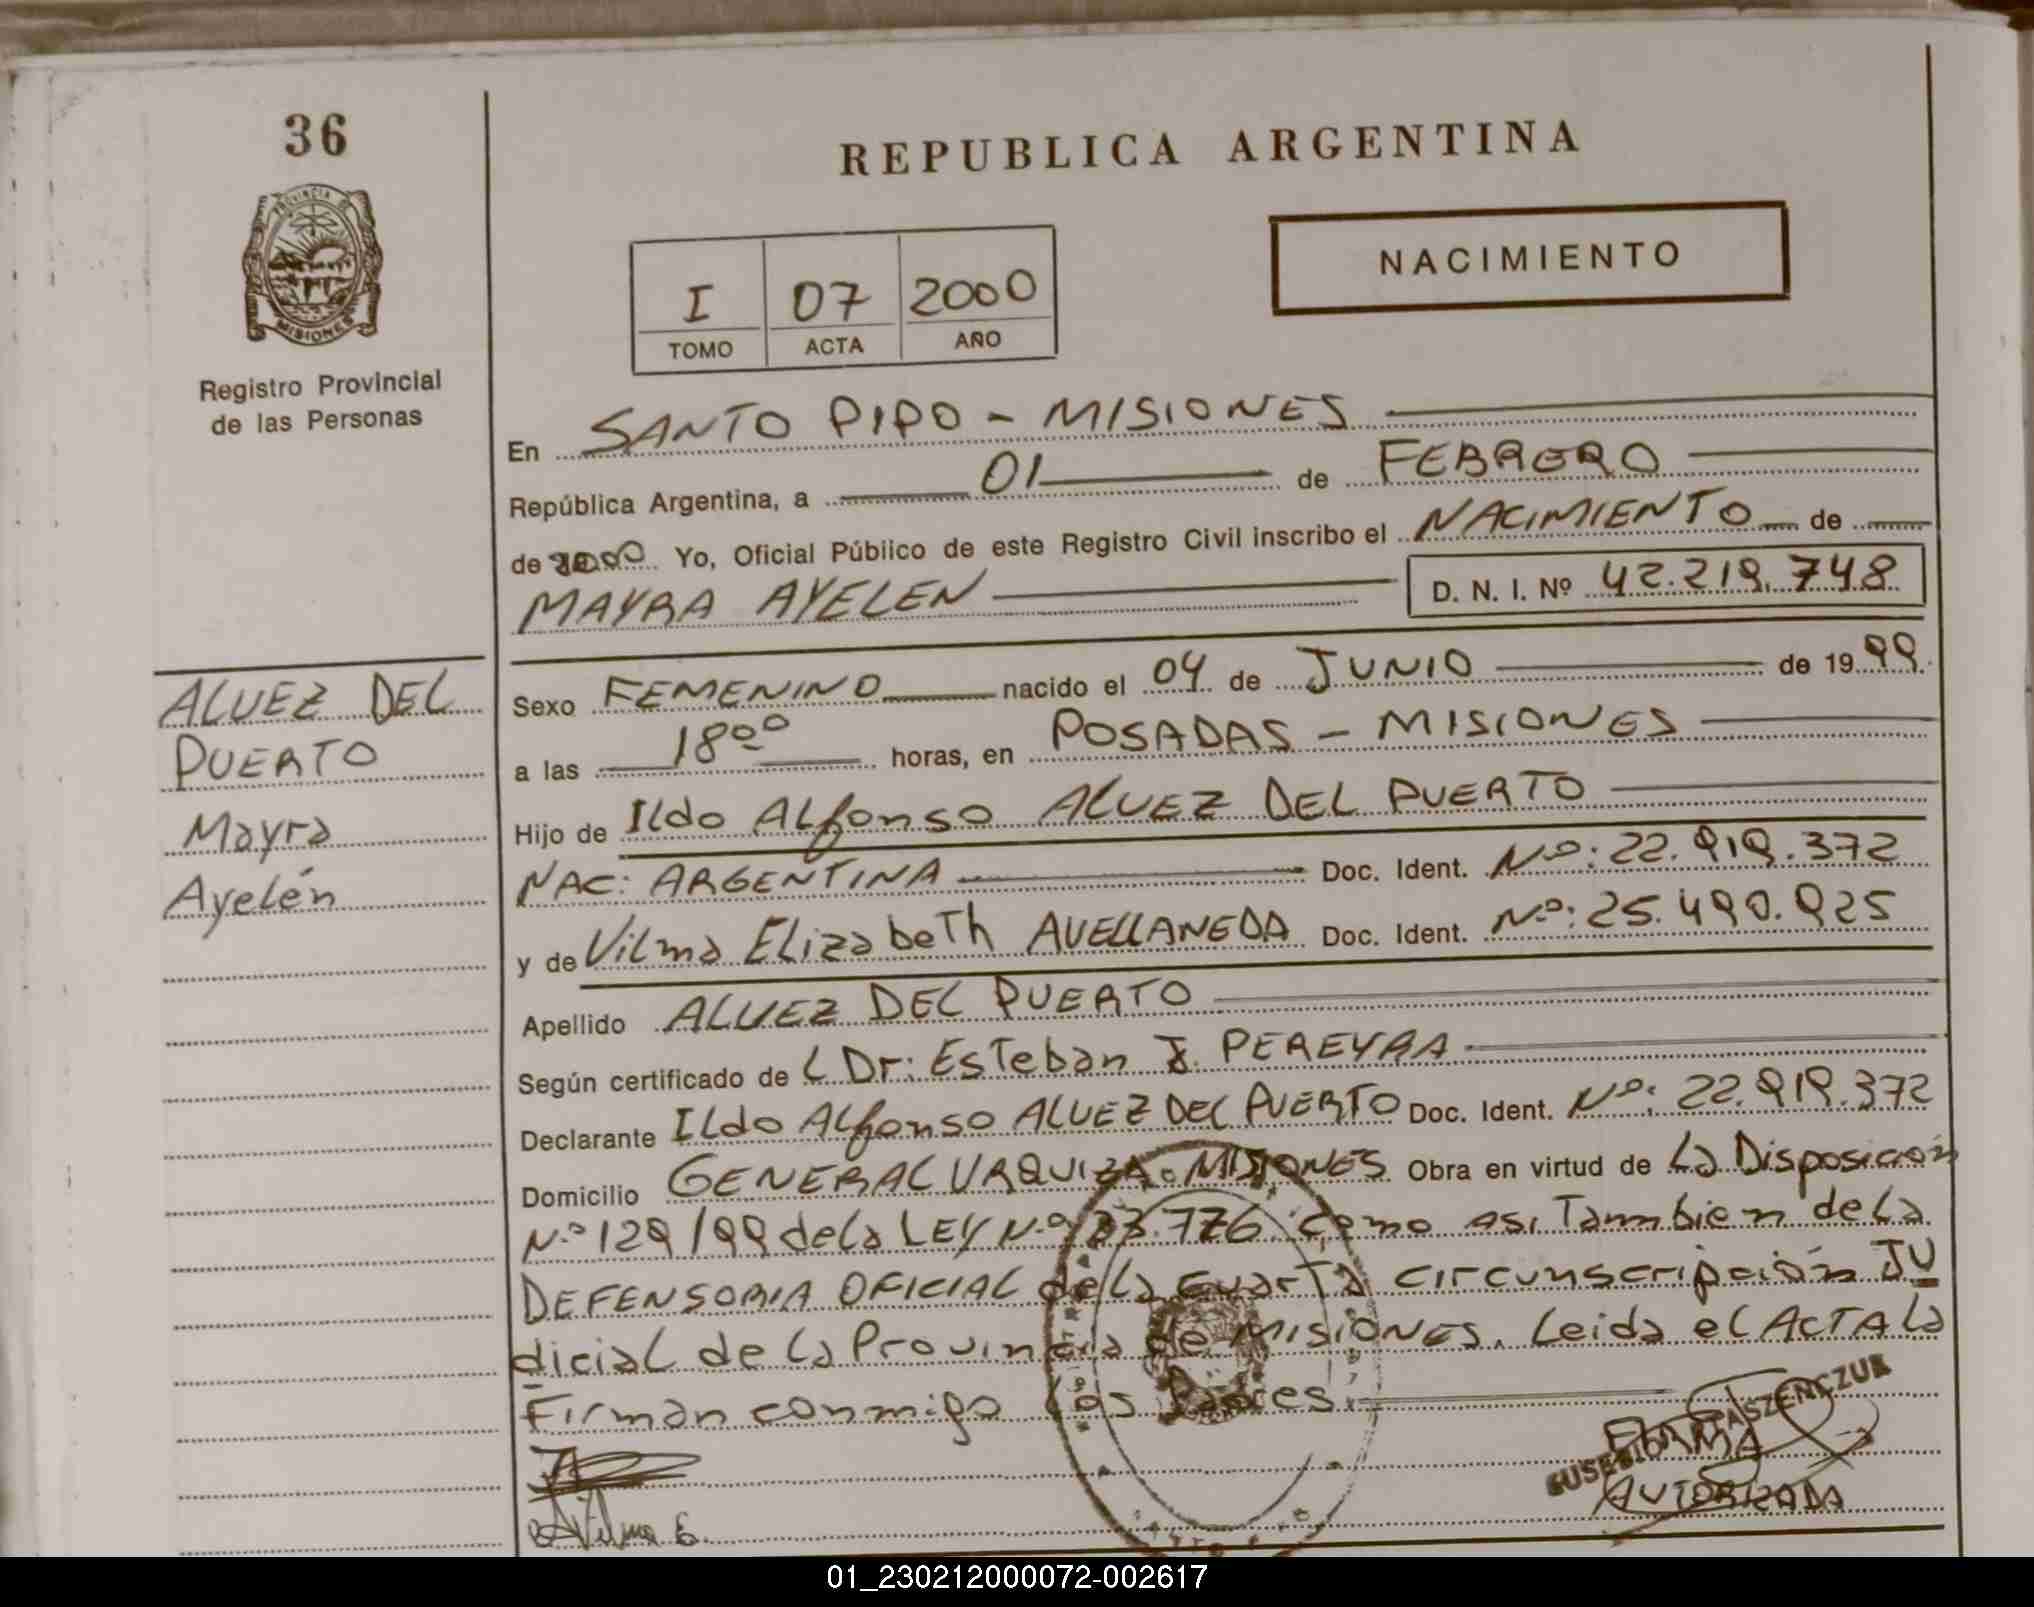 36
PROVINCIA DE
MISIONES
Registro Provincial
de las Personas
REPUBLICA ARGENTINA
NACIMIENTO
I 07 2000
TOMO ACTA AÑO
En SANTO PIPO - MISIONES
República Argentina, a 01 de FEBRERO
de 2000 Yo, Oficial Público de este Registro Civil inscribo el NACIMIENTO de
MAYRA AYELEN D. N. I. Nº 42.219.748
Sexo FEMENINO nacido el 04 de JUNIO de 1999
a las 18⁰⁰ horas, en POSADAS - MISIONES
Hijo de Ildo ALfonso ALVEZ DEL PUERTO
NAC: ARGENTINA Doc. Ident. Nº: 22.919.372
y de Vilma ELizabeth AVELLANEDA Doc. Ident. Nº: 25.490.925
Apellido ALVEZ DEL PUERTO
Según certificado de L Dr: Esteban J. PEREYRA
Declarante ILdo ALfonso ALVEZ DEL PUERTO Doc. Ident. Nº: 22.919.372
Domicilio GENERAL URQUIZA - MISIONES Obra en virtud de La Disposición
Nº 129/99 de la LEY Nº 33.776 como asi Tammbien de la
DEFENSORIA OFICIAL de La cuarta circunscripción JU
dicial de la Provincia de MISIONES. Leida el ACTA la
Firman conmigo los Padres.
Vilma E.
EUSEBIO TASZENCZUK
FIRMA
AUTORIZADA
ALVEZ DEL
PUERTO
Mayra
Ayelén
01_230212000072-002617